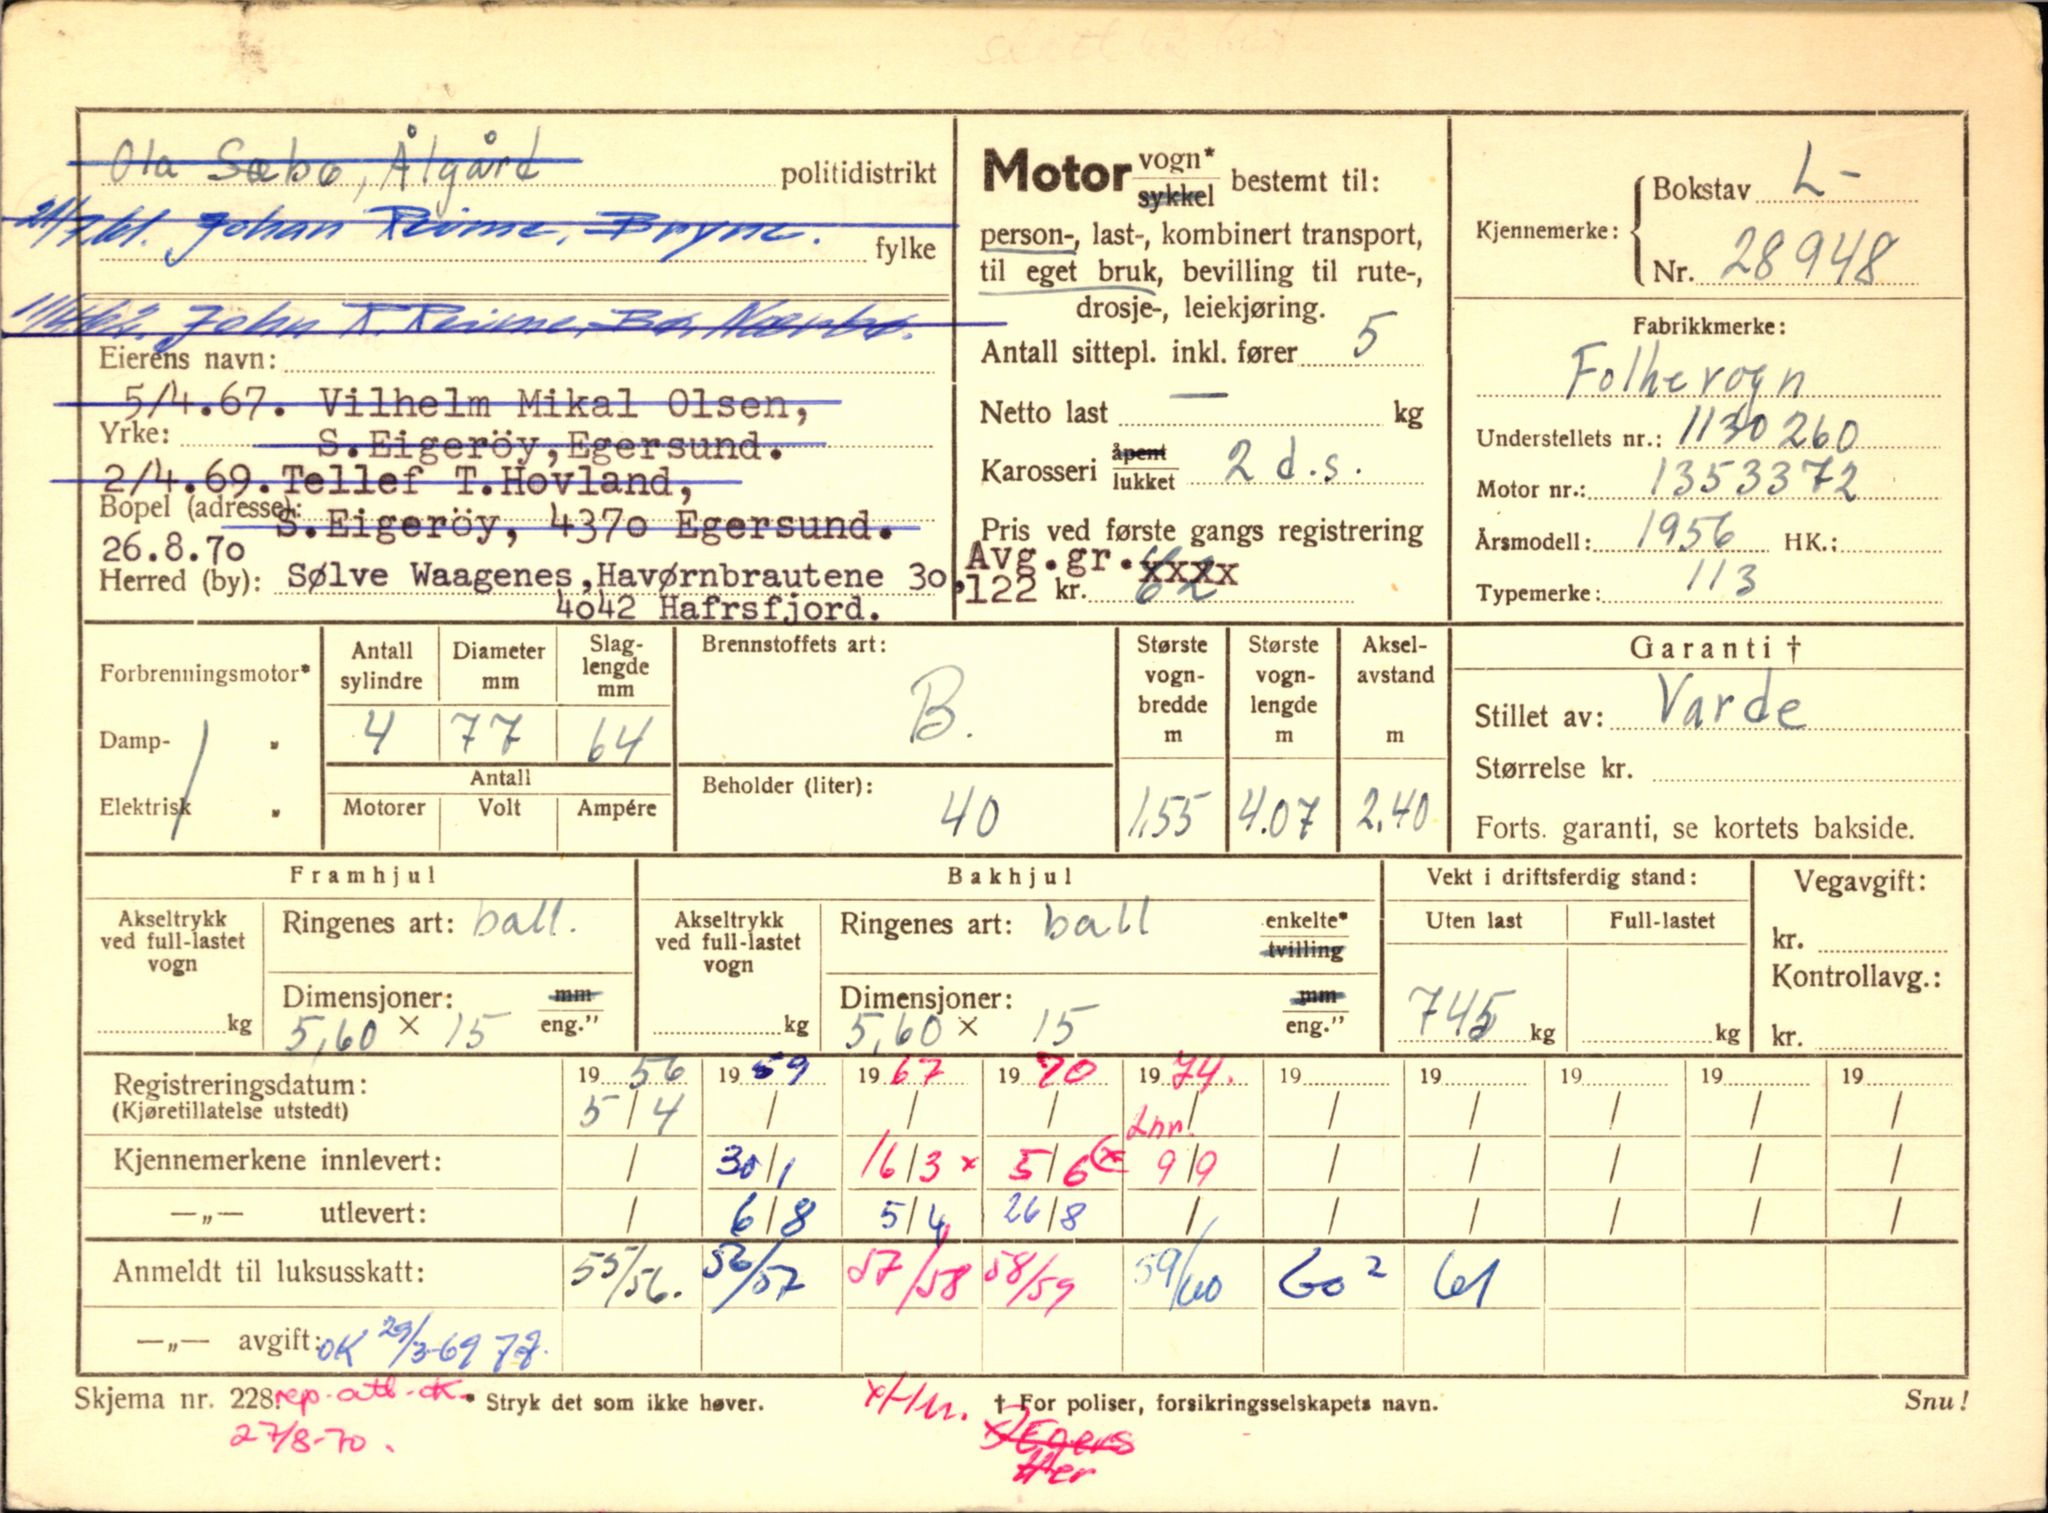 Ola Sæbø, Ålgård politidistrikt
21/7 61. Johan Reime, Bryne. fylke
11/4 62. John R. Reime, Bø, Nærbø.
Eierens navn:
5/4.67. Vilhelm Mikal Olsen,
Yrke: S.Eigeröy, Egersund.
2/4.69. Tellef T.Hovland,
Bopel (adresse): S.Eigeröy, 4370 Egersund.
26.8.70
Herred (by): Sølve Waagenes, Havørnbrautene 30,
4042 Hafrsfjord.
Motor vogn* sykkel bestemt til:
person-, last-, kombinert transport,
til eget bruk, bevilling til rute-,
drosje-, leiekjøring.
Antall sittepl. inkl. fører 5
Netto last — kg
Karosseri åpent lukket 2 d.s.
Pris ved første gangs registrering
Avg.gr. xxxx
122 kr. 62
Kjennemerke: Bokstav L-
Nr. 28948
Fabrikkmerke:
Folkevogn
Understellets nr.: 1130260
Motor nr.: 1353372
Årsmodell: 1956 HK.:
Typemerke: 113
Forbrenningsmotor*
Damp- "
Elektrisk "
Antall sylindre 4
Diameter mm 77
Slag-lengde mm 64
Antall
Motorer Volt Ampére
Brennstoffets art: B.
Beholder (liter): 40
Største vogn-bredde m 1,55
Største vogn-lengde m 4.07
Aksel-avstand m 2,40
Garanti †
Stillet av: Varde
Størrelse kr.
Forts. garanti, se kortets bakside.
Framhjul
Akseltrykk ved full-lastet vogn kg
Ringenes art: ball.
Dimensjoner: mm eng."
5,60 × 15
Bakhjul
Akseltrykk ved full-lastet vogn kg
Ringenes art: ball enkelte* tvilling
Dimensjoner: mm eng."
5,60 × 15
Vekt i driftsferdig stand:
Uten last Full-lastet
745 kg kg
Vegavgift:
kr.
Kontrollavg.:
kr.
Registreringsdatum: 19 56 19 59 19 67 19 70 19 74. 19 19 19 19 19
(Kjøretillatelse utstedt) 5/4 / / / / / / / / /
Lnr.
Kjennemerkene innlevert: / 30/1 16/3 x 5/6 (x 9/9 / / / / /
—„— utlevert: / 6/8 5/4 26/8 / / / / / /
Anmeldt til luksusskatt: 55/56. 56/57 57/58 58/59 59/60 60² 61
—„— avgift: OK 29/3-69
Skjema nr. 228. rep. att. ok. * Stryk det som ikke høver. † For poliser, forsikringsselskapets navn. Snu!
27/8-70.
x) Egers